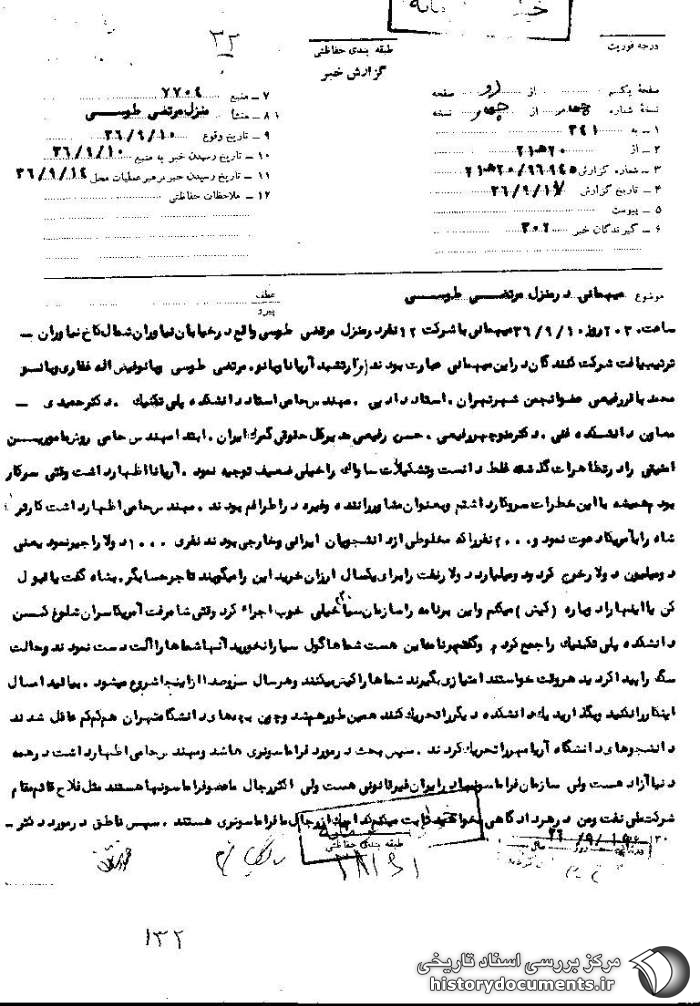 ۳۳
درجه فوریت
طبقه بندی حفاظتی
گزارش خبر
صفحه یکم از دو صفحه
نسخه شماره چهار از چهار نسخه
۱ ـ به ۳۴۱
۲ ـ از ۲۰ه۲۱
۳ ـ شماره گزارش ۲۰/۶۶۹۴۵ه۲۱
۴ ـ تاریخ گزارش
۵ ـ پیوست
۶ ـ گیرندگان خبر ۳۰۲
۷ ـ منبع ۷۷۰۴
۸ ـ منشأ منزل مرتضی طوسی
۹ ـ تاریخ وقوع ۳۶/۹/۱۰
۱۰ ـ تاریخ رسیدن خبر به منبع ۳۶/۹/۱۰
۱۱ ـ تاریخ رسیدن خبر به رهبر عملیات محل ۳۶/۹/۱۴
۱۲ ـ ملاحظات حفاظتی
موضوع میهمانی در منزل مرتضی طوسی
عطف
پیرو
ساعت ۲۰۳۰ روز ۳۶/۹/۱۰ میهمانی با شرکت ۱۲ نفر در منزل مرتضی طوسی واقع در خیابان نیاوران شمال کاخ نیاوران ـ
ترتیب یافت شرکت کنندگان در این میهمانی عبارت بودند از ارتشبد آریانا و بانو. مرتضی طوسی و بانو فیض اله غفاری و بانو
محمد باقر رفیعی عضو انجمن شهر تهران. استاد ادیبی. مهندس حامی استاد دانشکده پلی تکنیک. دکتر حمیدی ـ
معاون دانشکده فنی. دکتر منوچهر رفیعی. حسن رفیعی مدیرکل حقوقی گمرک ایران. ابتدا مهندس حامی روش مامورین
امنیتی را در تظاهرات گذشته غلط دانست و تشکیلات ساواک را خیلی ضعیف توجیه نمود. آریانا اظهار داشت وقتی سر کار
بودم همیشه با این خطرات سروکار داشتم و بعنوان مشاور راننده وغیره در اطرافم بودند. مهندس حامی اظهار داشت کارتر
شاه را به آمریکا دعوت نمود و ۲۰۰۰ نفر را که مخلوطی از دانشجویان ایرانی و خارجی بودند نفری ۱۰۰۰ دلار اجیر نمود یعنی
دو میلیون دولار خرج کرد و دو میلیارد دولار نفت را برای یکسال ارزان خرید این را میگویند تاجر حسابگر. بشاه گفت یا قبول
کن یا اینها را دوباره (کیش) میکنم و این برنامه را سازمان سیا خیلی خوب اجراء کرد وقتی شاه رفت آمریکا سران شلوغ کن
دانشکده پلی تکنیک را جمع کردم و گفتم برنامه این هست شماها گول سیا را نخورید آنها شماها را آلت دست نمودند و حالت
سگ را پیدا کردید هر وقت خواستند امتیازی بگیرند شماها را کیش میکنند و هر سال سروصدا از اینجا شروع میشود. بیائید امسال
اینکار را نکنید و بگذارید یک دانشکده دیگر را تحریک کنند همین طور هم شد و چون بچه های دانشگاه تهران هم کم کم عاقل شدند
دانشجوهای دانشگاه آریا مهر را تحریک کردند. سپس بحث در مورد فراماسونری ها شد و مهندس حامی اظهار داشت در همه
دنیا آزاد هست ولی سازمان فراماسونها در ایران غیر قانونی هست ولی اکثر رجال ما عضو فراماسونها هستند مثل فلاح قائم مقام
شرکت ملی نفت و من در هر دادگاهی بخواهید ثابت میکنم رجال ما فراماسونری هستند. سپس ناطق در مورد دکتر ـ
طبقه بندی حفاظتی
۱۳۲
مرکز بررسی اسناد تاریخی
historydocuments.ir